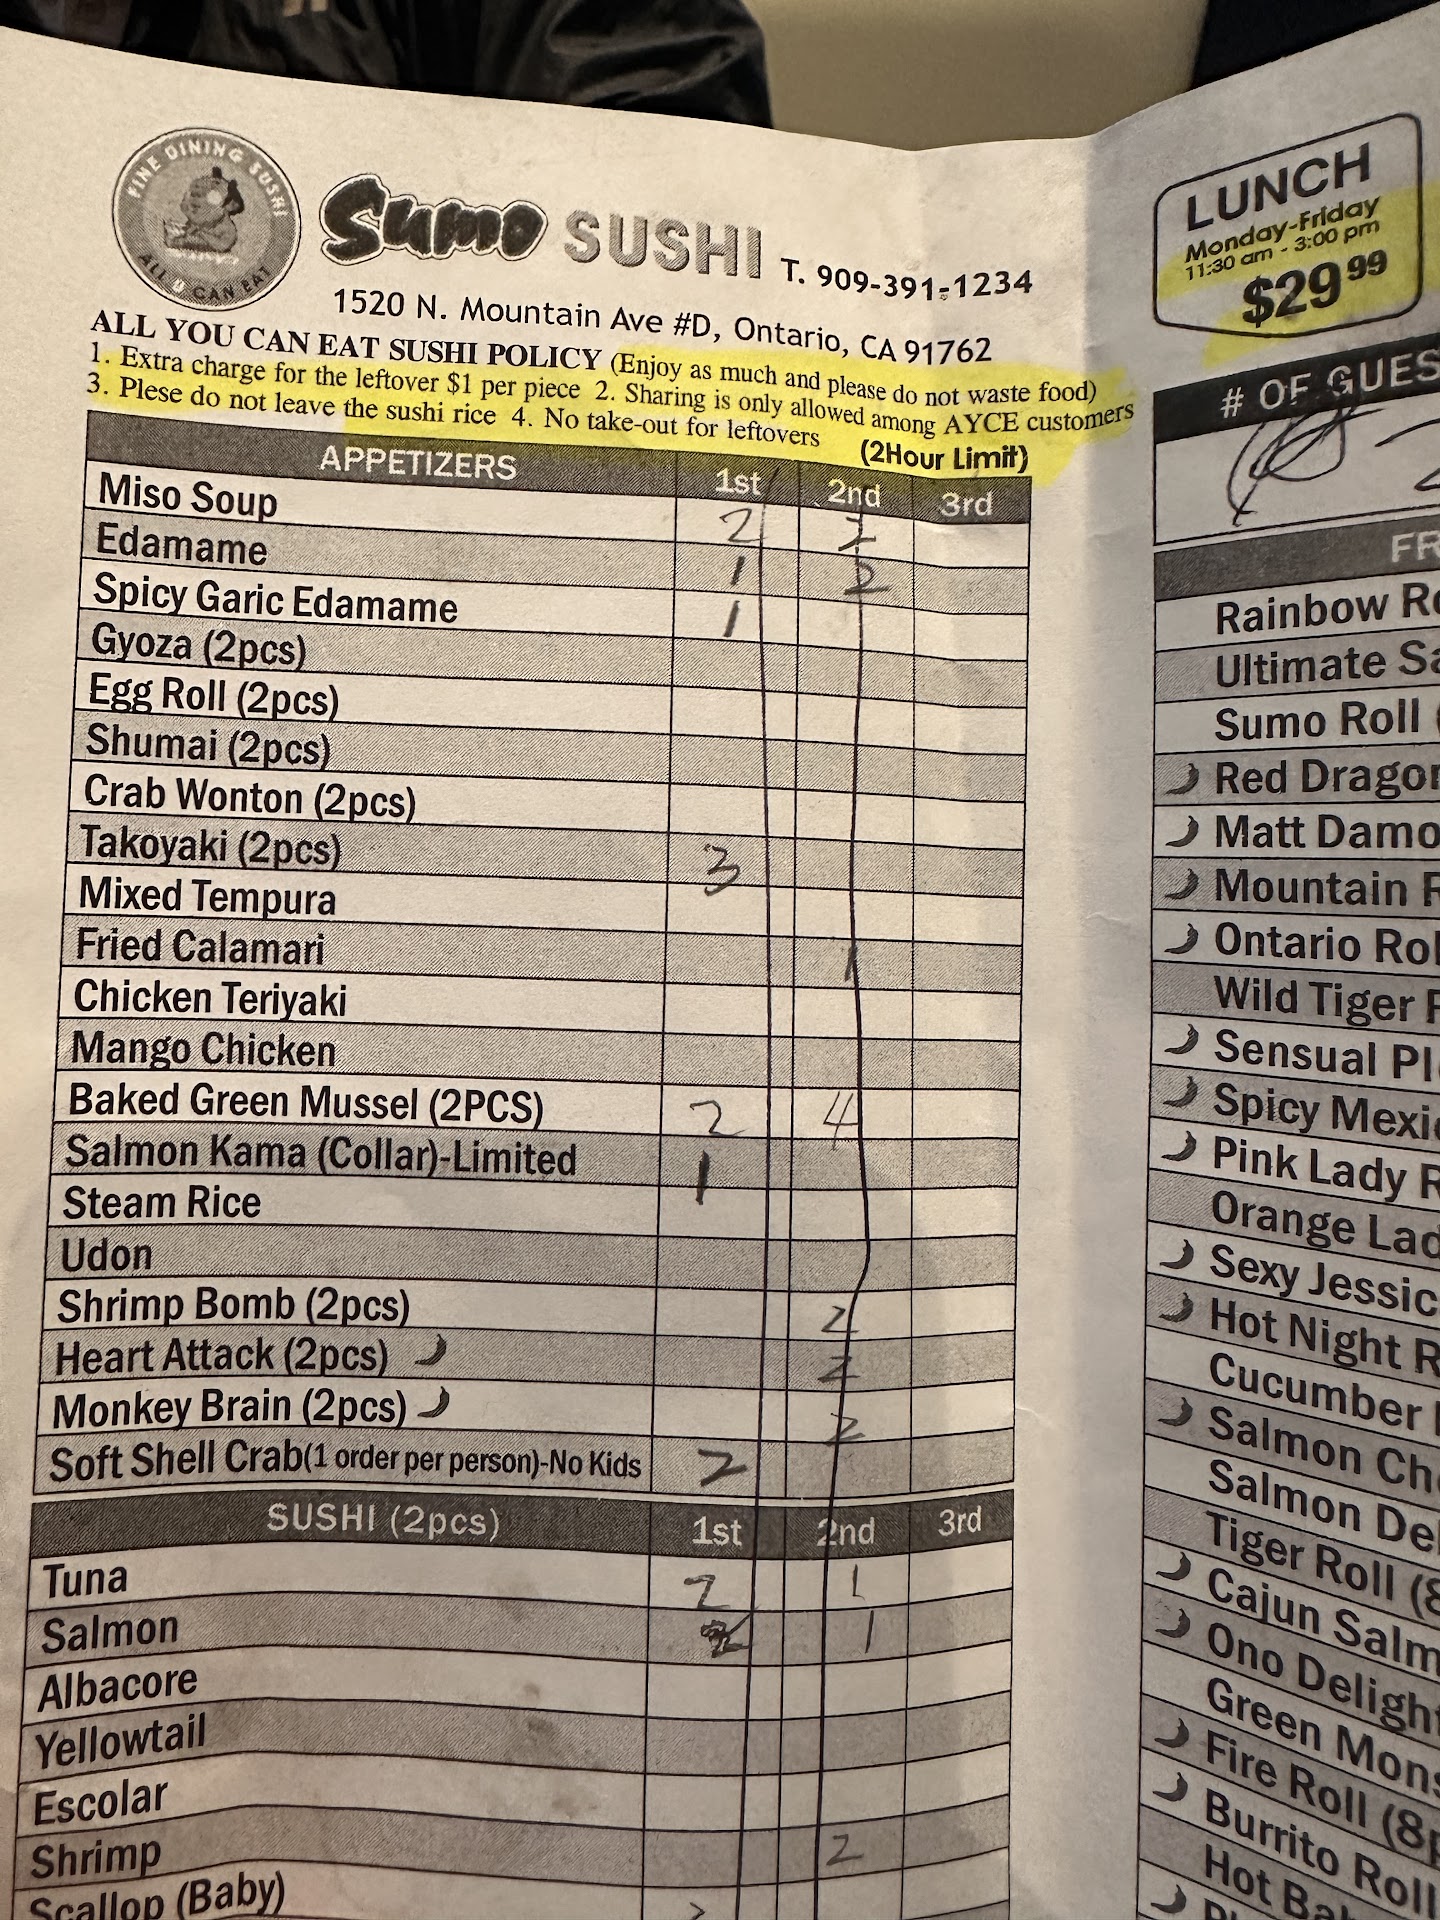 FINE DINING SUSHI
ALL U CAN EAT
Sumo SUSHI T. 909-391-1234
1520 N. Mountain Ave #D, Ontario, CA 91762
ALL YOU CAN EAT SUSHI POLICY (Enjoy as much and please do not waste food)
1. Extra charge for the leftover $1 per piece 2. Sharing is only allowed among AYCE customers
3. Plese do not leave the sushi rice 4. No take-out for leftovers (2Hour Limit)
APPETIZERS 1st 2nd 3rd
Miso Soup 2 2
Edamame 1 2
Spicy Garic Edamame 1
Gyoza (2pcs)
Egg Roll (2pcs)
Shumai (2pcs)
Crab Wonton (2pcs)
Takoyaki (2pcs) 3
Mixed Tempura
Fried Calamari 1
Chicken Teriyaki
Mango Chicken
Baked Green Mussel (2PCS) 2 4
Salmon Kama (Collar)-Limited 1
Steam Rice
Udon
Shrimp Bomb (2pcs) 2
Heart Attack (2pcs) 2
Monkey Brain (2pcs) 2
Soft Shell Crab(1 order per person)-No Kids 2
SUSHI (2pcs) 1st 2nd 3rd
Tuna 2 1
Salmon 1
Albacore
Yellowtail
Escolar
Shrimp 2
Scallop (Baby)
LUNCH
Monday-Friday
11:30 am - 3:00 pm
$29.99
# OF GUES
FR
Rainbow Ro
Ultimate Sa
Sumo Roll (
Red Dragon
Matt Damo
Mountain R
Ontario Rol
Wild Tiger R
Sensual Pl
Spicy Mexi
Pink Lady R
Orange Lad
Sexy Jessic
Hot Night R
Cucumber
Salmon Ch
Salmon Del
Tiger Roll (8
Cajun Salm
Ono Delight
Green Mons
Fire Roll (8p
Burrito Roll
Hot Ba